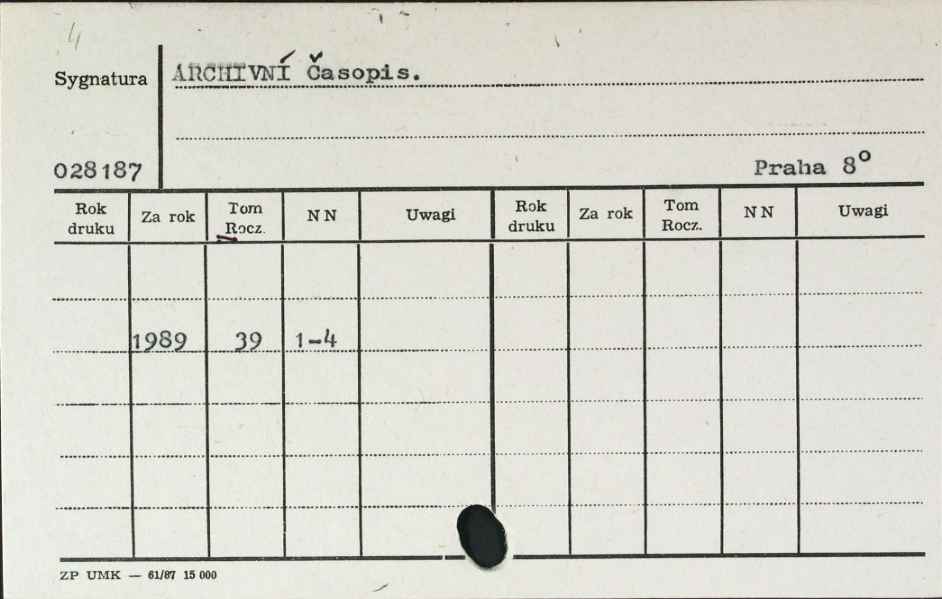 4
Sygnatura
ARCHIVNÍ Časopis.
028187
Praha 8°
Rok druku Za rok Tom Rocz. NN Uwagi Rok druku Za rok Tom Rocz. NN Uwagi
1989 39 1-4
ZP UMK — 61/87 15 000